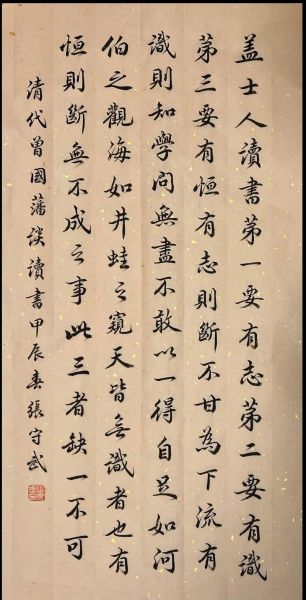 盖士人讀書第一要有志第二要有識
第三要有恒有志則斷不甘為下流有
識則知學問無盡不敢以一得自足如河
伯之觀海如井蛙之窺天皆無識者也有
恒則斷無不成之事此三者缺一不可
清代曾國藩談讀書甲辰春張守武